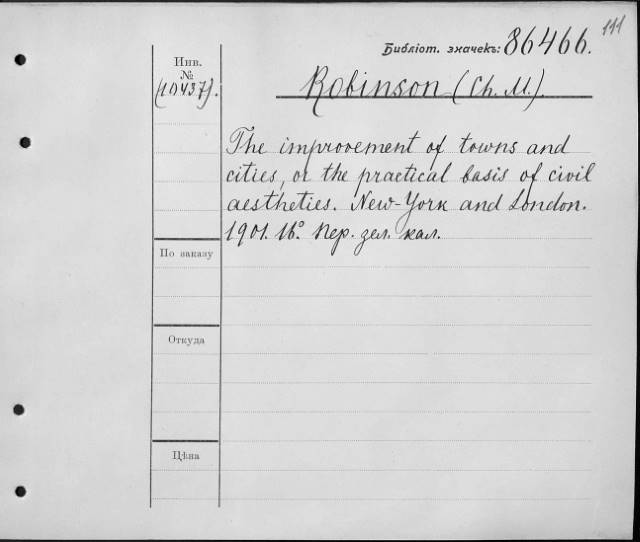 111
Библіот. значекъ: 86466.
Инв.
№
(10437).
Robinson (Ch. M.).
The improvement of towns and
cities, or the practical basis of civil
aestheties. New-York and London.
1901. 16°. Пер. зел. кал.
По заказу
Откуда
Цѣна